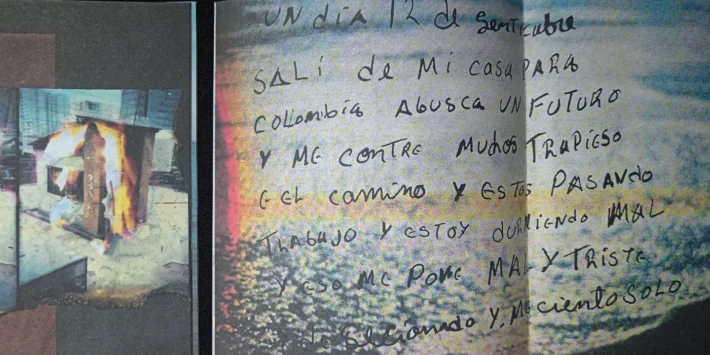 UN dia 12 de Sentiembre
SALi de Mi casa PARA
COLOMbia ABUSCA UN FUTURO
Y ME CONTRE MUchos TRAPIESO
E EL camino Y ESTOS PASANdo
TRABAJO Y ESTOY dURMIENdo MAL
Y ESO ME PONE MAL Y TRISTE
Y, ME cientO SOLO